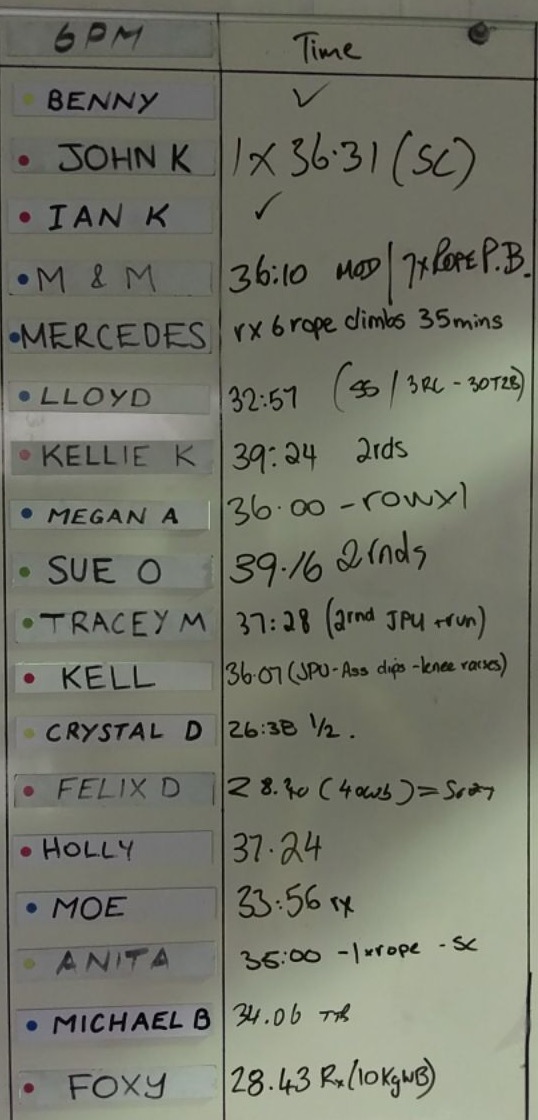 6PM Time
BENNY ✓
JOHN K 1X 36.31 (SC)
IAN K ✓
M & M 36:10 MOD | 7x ROPE P.B.
MERCEDES rx 6 rope climbs 35mins
LLOYD 32:57 (SS / 3RC - 30T2B)
KELLIE K 39:24 2rds
MEGAN A 36.00 - rowx1
SUE O 39.16 2rnds
TRACEY M 37:28 (2rnd JPU +run)
KELL 36.07 (JPU-Ass dips -knee raises)
CRYSTAL D 26:38 1/2.
FELIX D 28.30 (40wb) =
HOLLY 37.24
MOE 33:56 rx
ANITA 35:00 -1xrope -SC
MICHAEL B 34.06
FOXY 28.43 Rx (10KgWB)